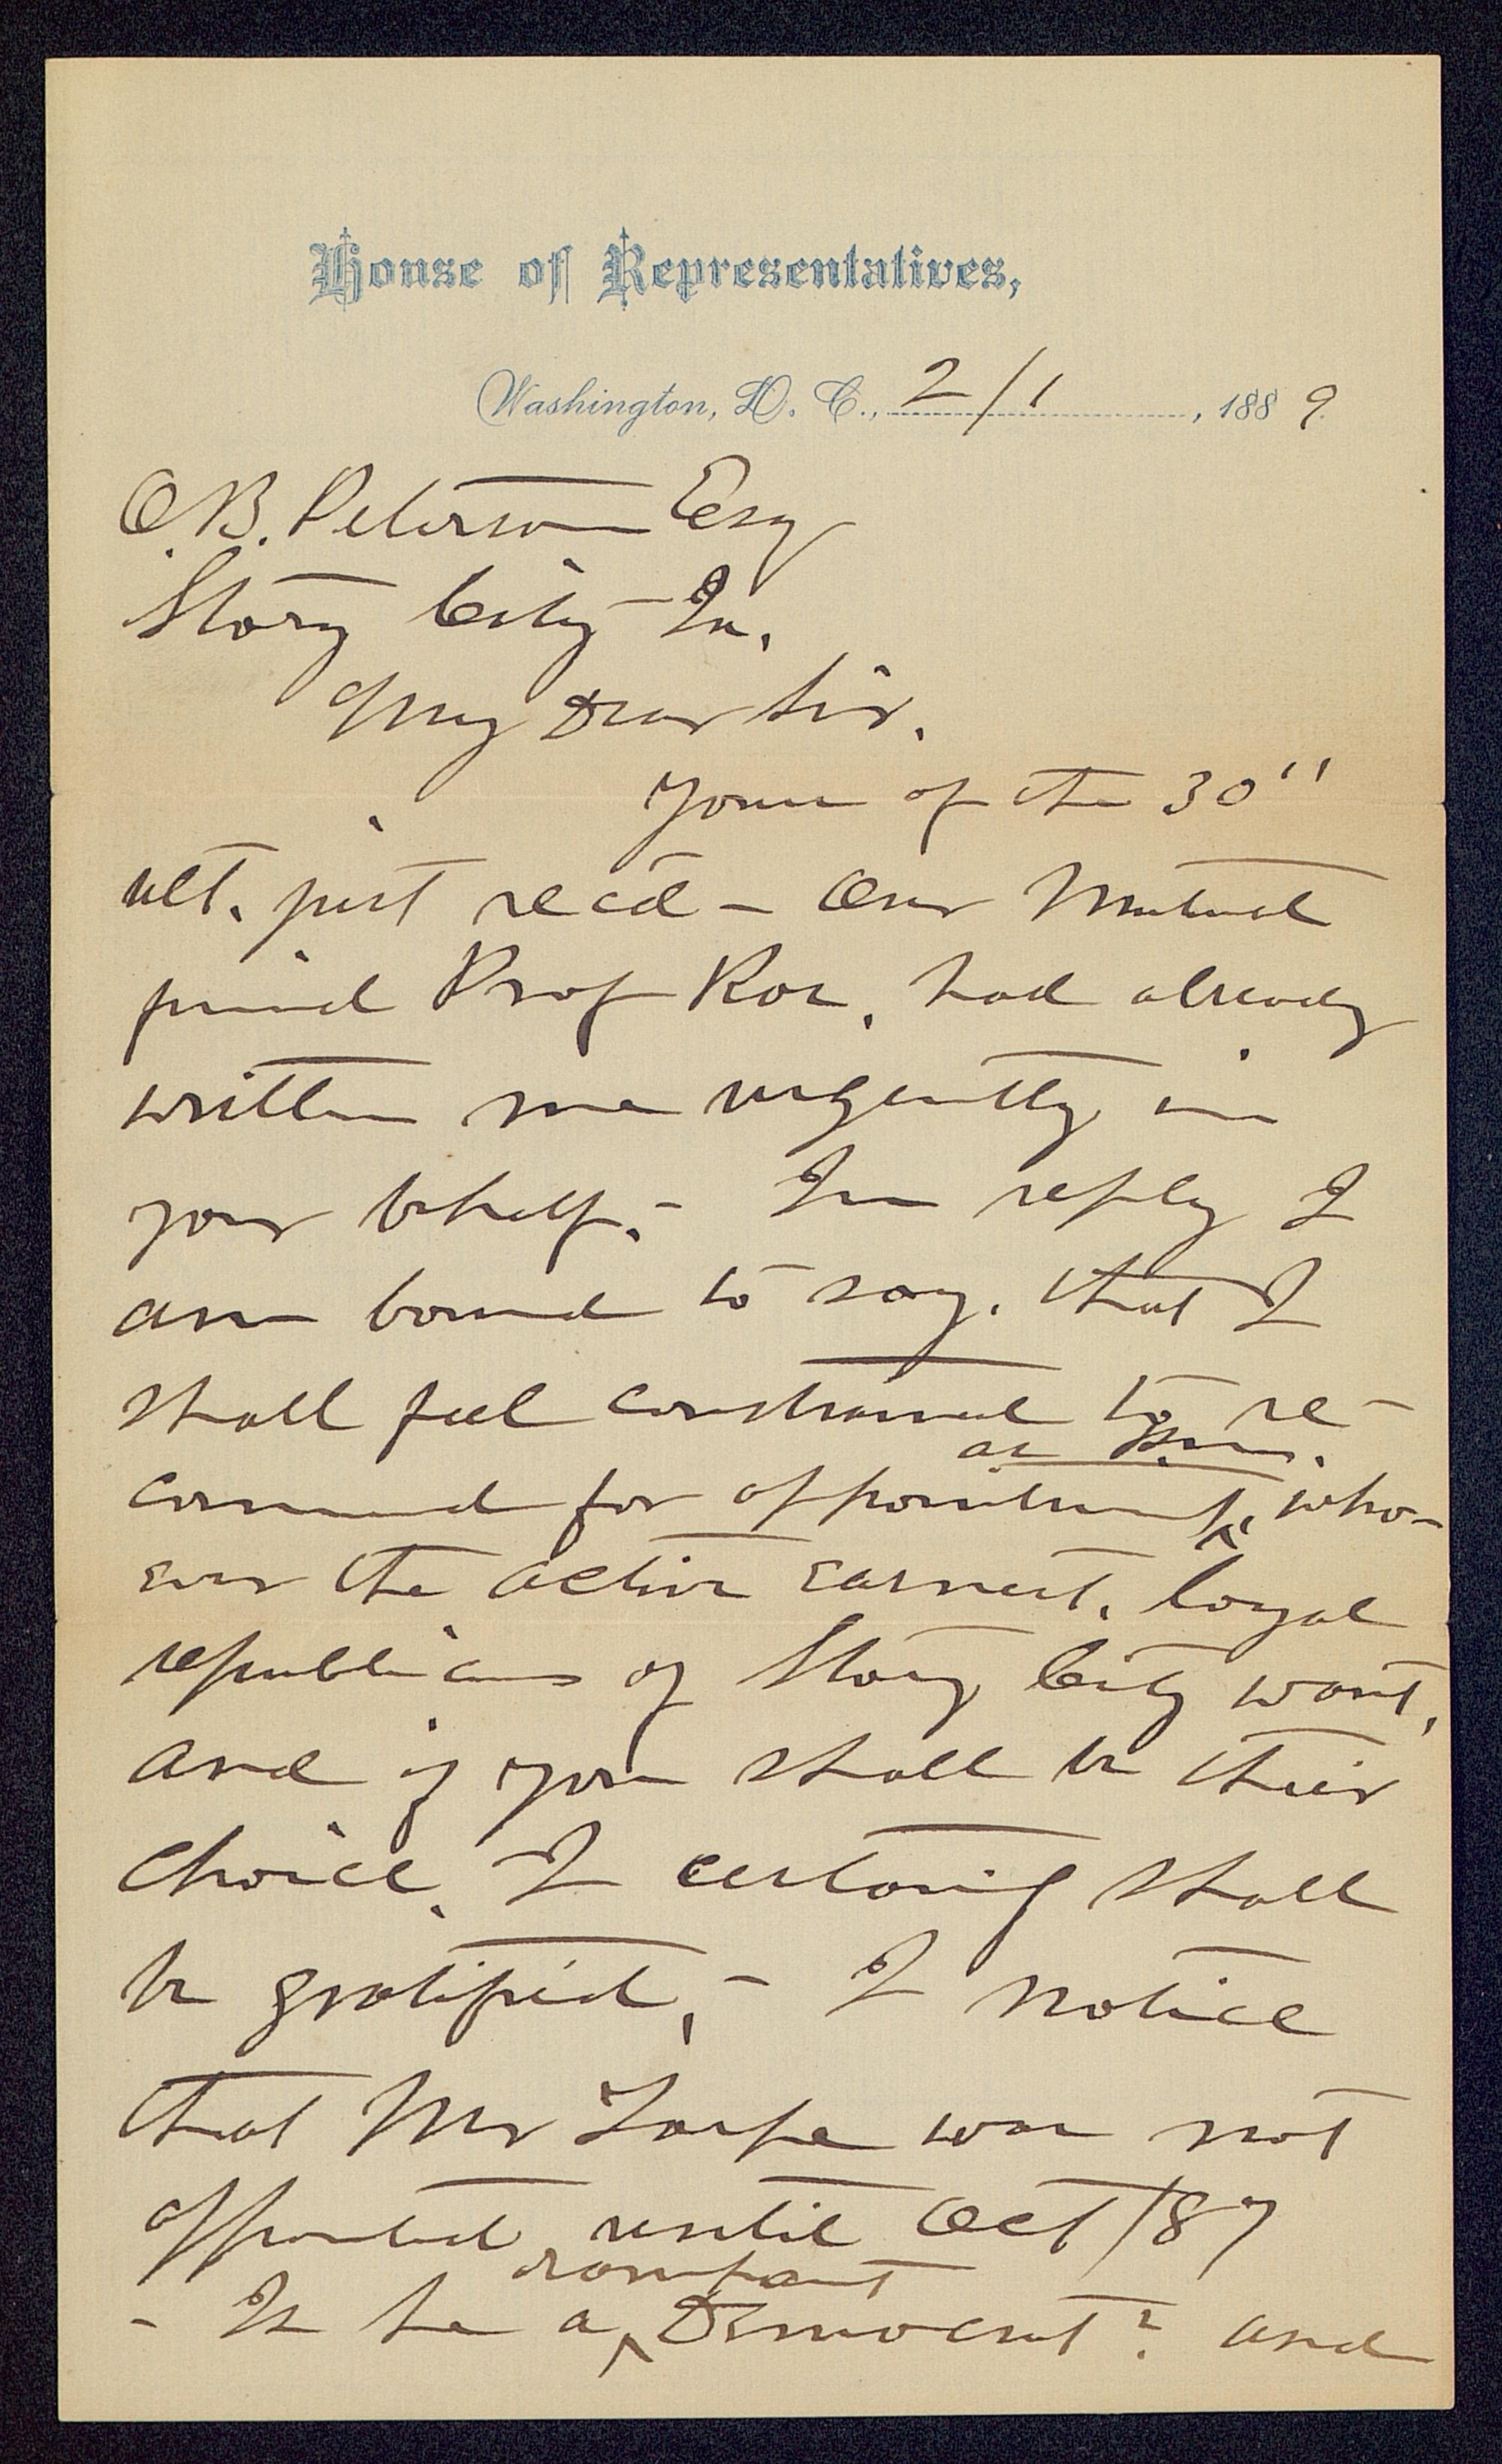 House of Representatives,
Washington, D. C., 2/1, 1889.
O.B. Peterson Esq
Story City Ia.
My Dear Sir.
Yours of the 30"
ult. just rec'd - Our Mutual
friend Prof Roe, had already
written me urgently in
your behalf. - In reply I
am bound to say, that I
shall feel constrained to re-
as P.M.
commend for appointment, who-
ever the active earnest, loyal
republicans of Story City want,
and if you shall be their
choice, I certainly shall
be gratified, - I notice
that Mr was not
appointed until Oct /87
rampant
- Is he a Democrat? and